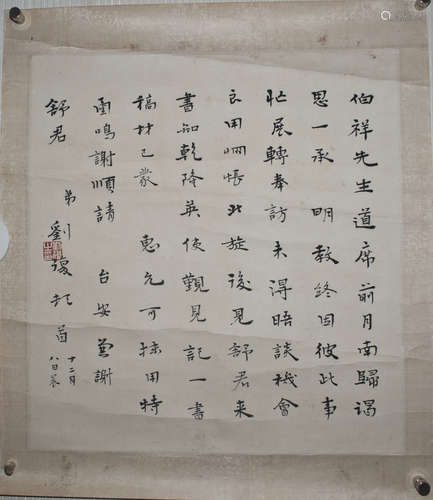 伯祥先生道席前月南歸謁
思一承明教終因彼此事
忙展轉奉訪未得晤談機會
良用悵悵北旋後見舒君來
書知乾隆英使覲見記一書
稿材已蒙惠允可採用特
函鳴謝順請台安並謝
舒君弟劉復起首
十二月
八日晨